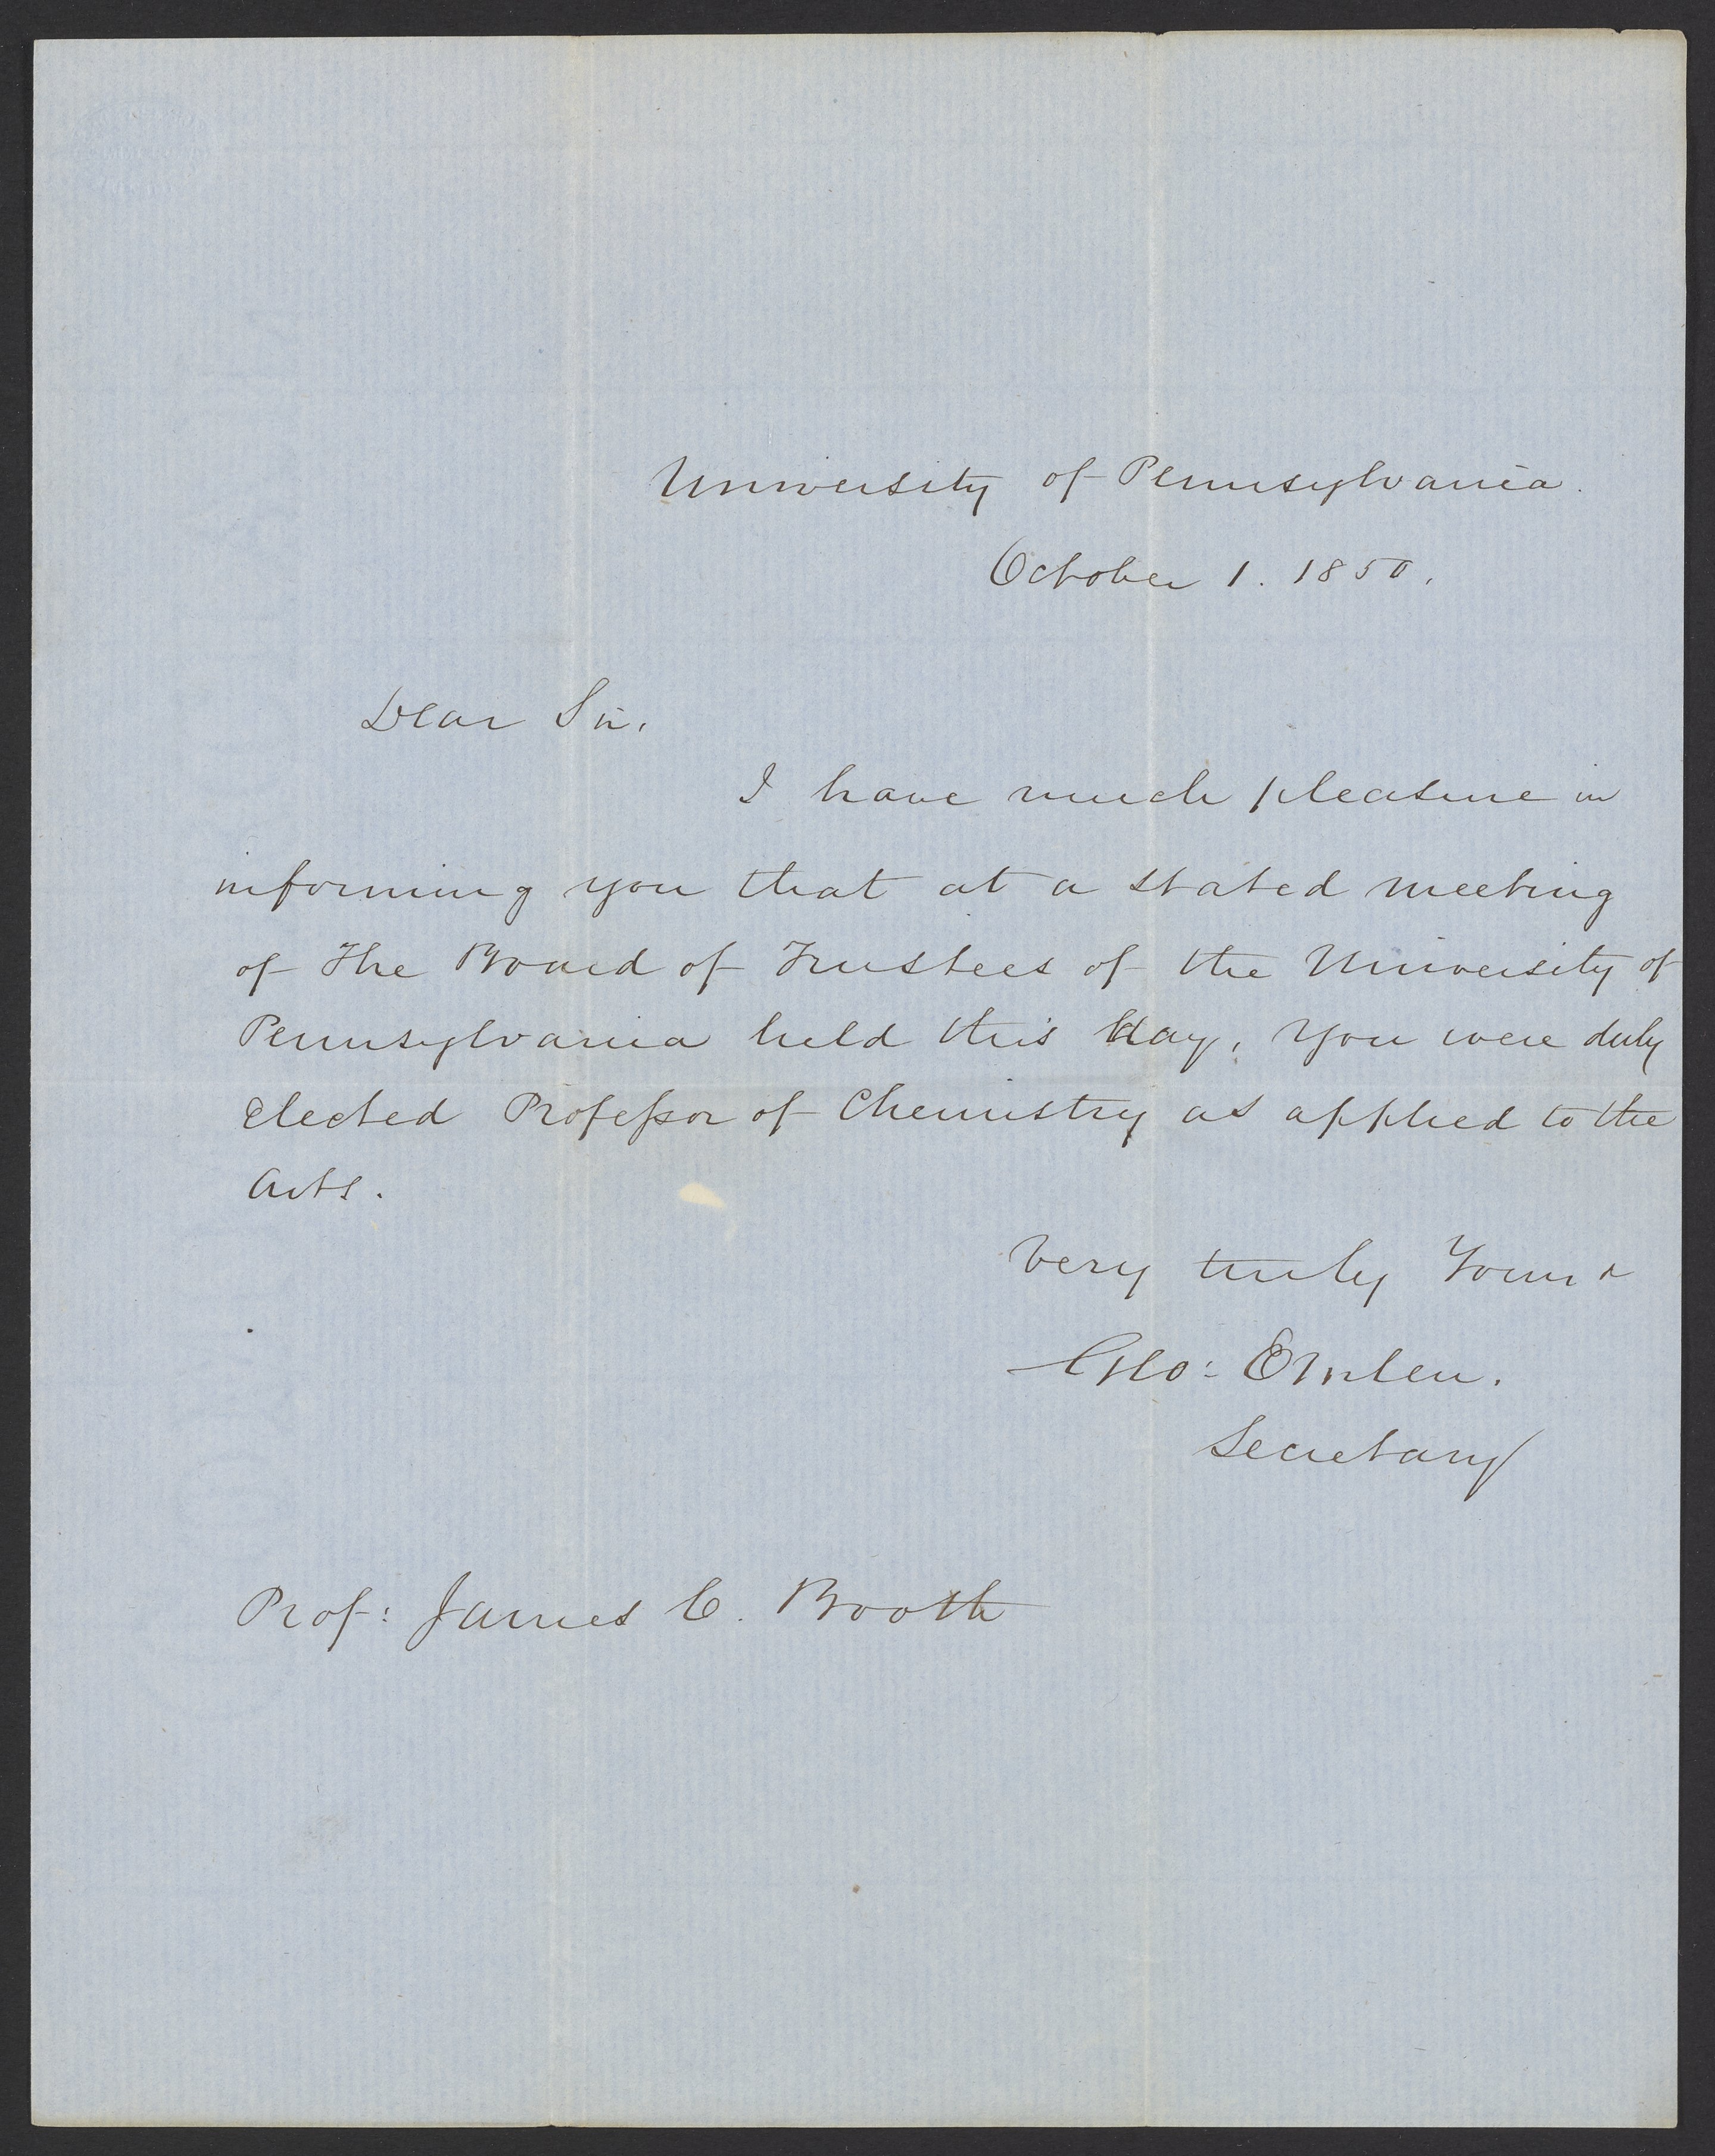 University of Pennsylvania.
October 1. 1850.
Dear Sir,
I have much pleasure in
informing you that at a stated meeting
of The Board of Trustees of the University of
Pennsylvania held this day, you were duly
elected Professor of Chemistry as applied to the
Arts.
Very truly Yours
Geo: Emlen.
Secretary
Prof: James C. Booth